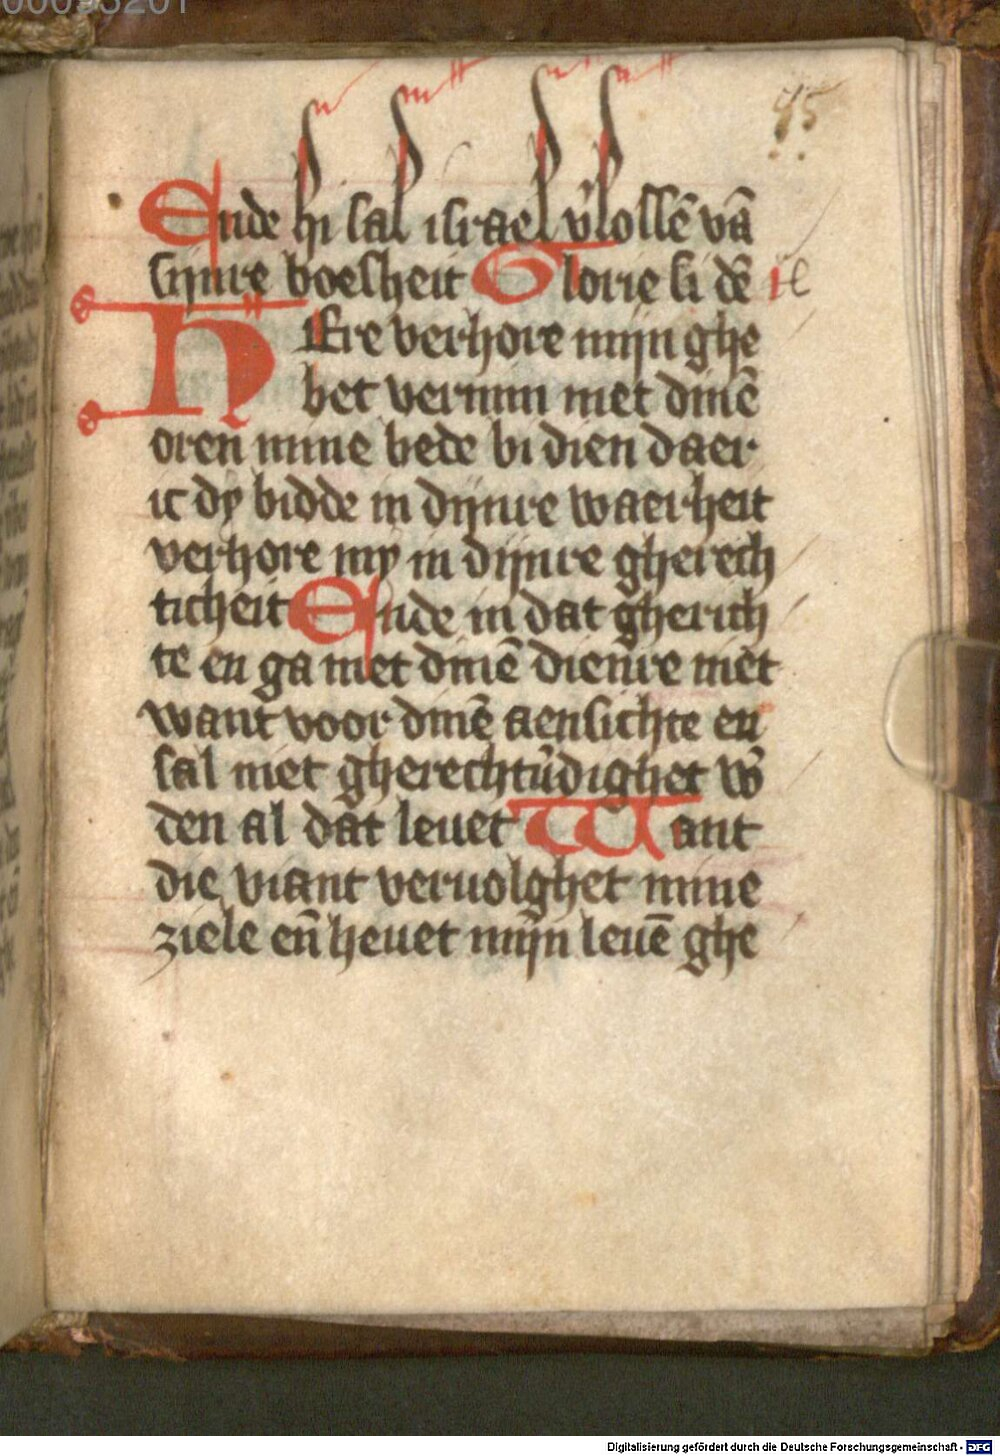 00093201
85
Ende hi sal israel v̓lossē vā
sijnre boesheit Glorie si dē
HEre verhore mijn ghe
bet vernim met dinē
oren mine bede bi dien daer
ic dy bidde in dijnre waerheit
verhore my in dijnre gherech
ticheit Ende in dat gherich
te en ga niet dinē dienre met
want voor dinē aensichte en
sal niet gherechtv̓dighet w̓
den al dat leuet Want
die viant veruolghet mine
ziele en̄ heuet mijn leuē ghe
Digitalisierung gefördert durch die Deutsche Forschungsgemeinschaft - DFG